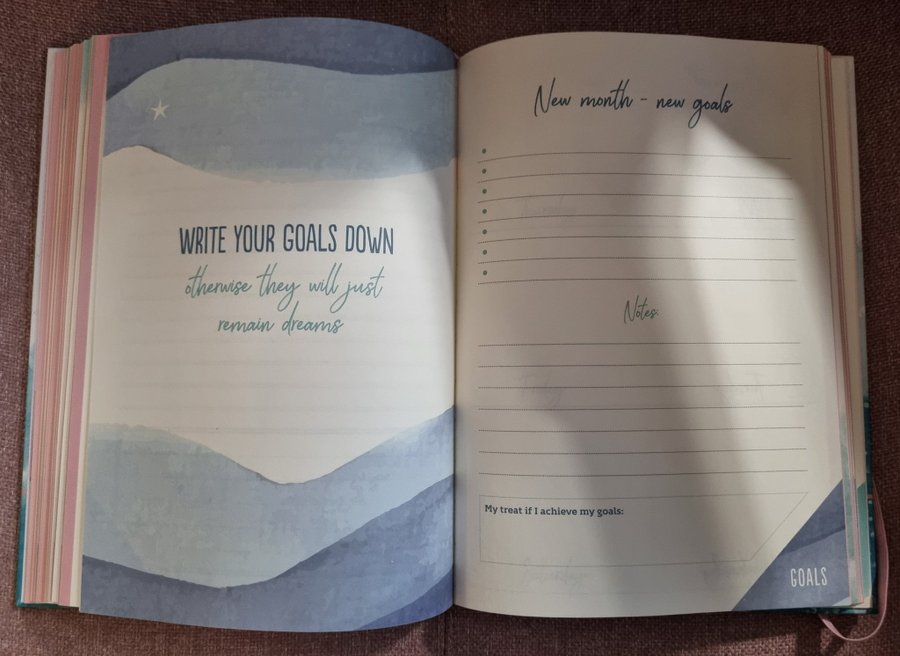 WRITE YOUR GOALS DOWN
otherwise they will just
remain dreams
New month - new goals
Notes:
My treat if I achieve my goals:
GOALS